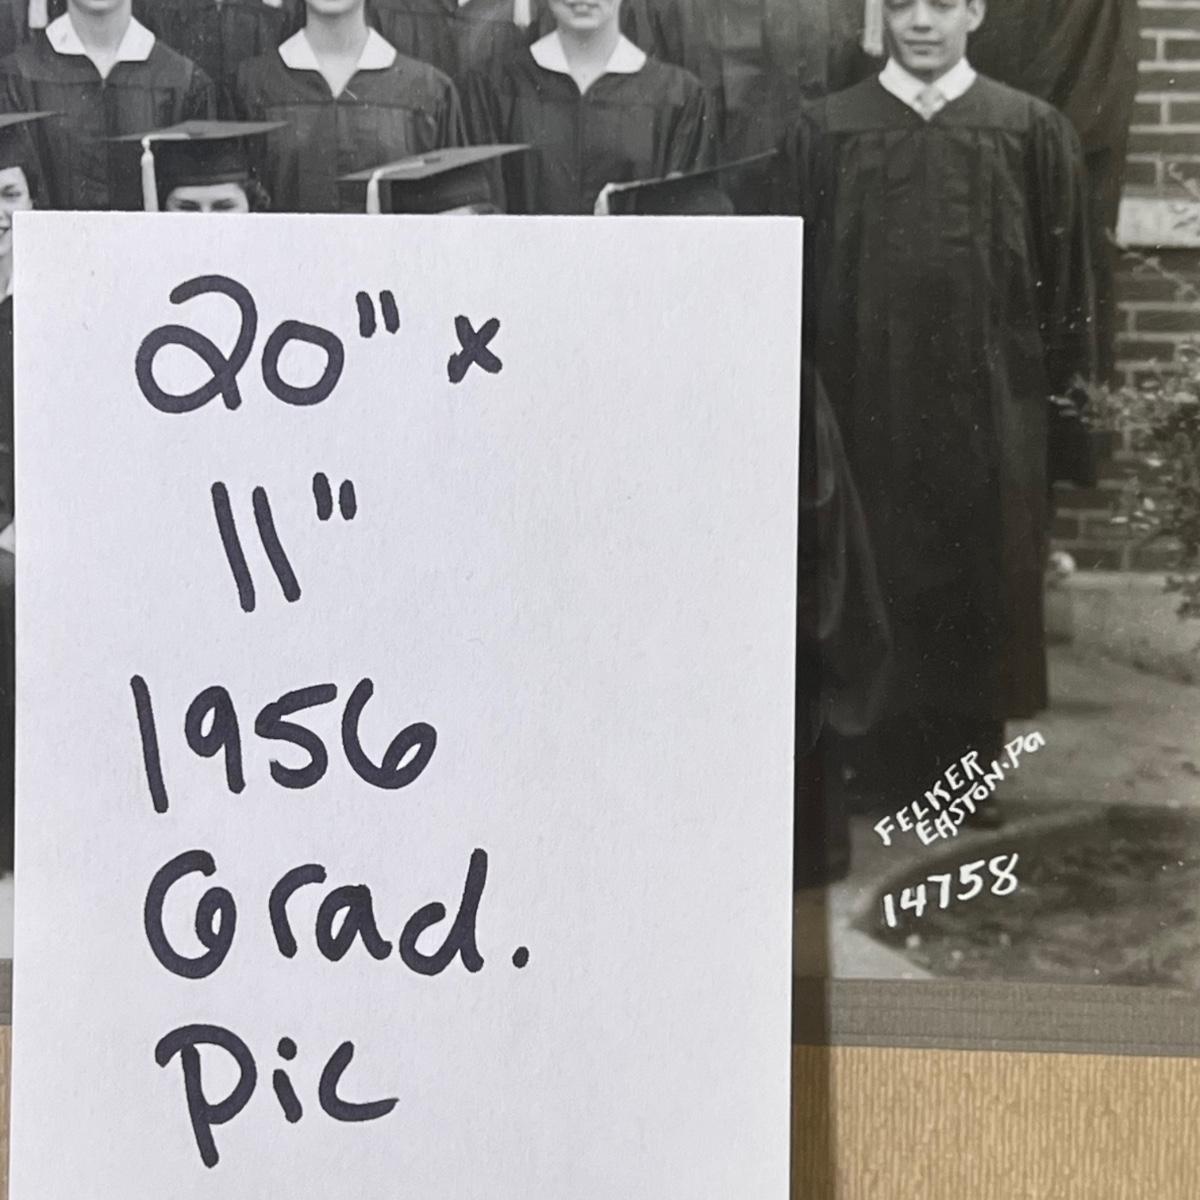 20" x
11"
1956
Grad.
Pic
FELKER
EASTON.Pa
14758